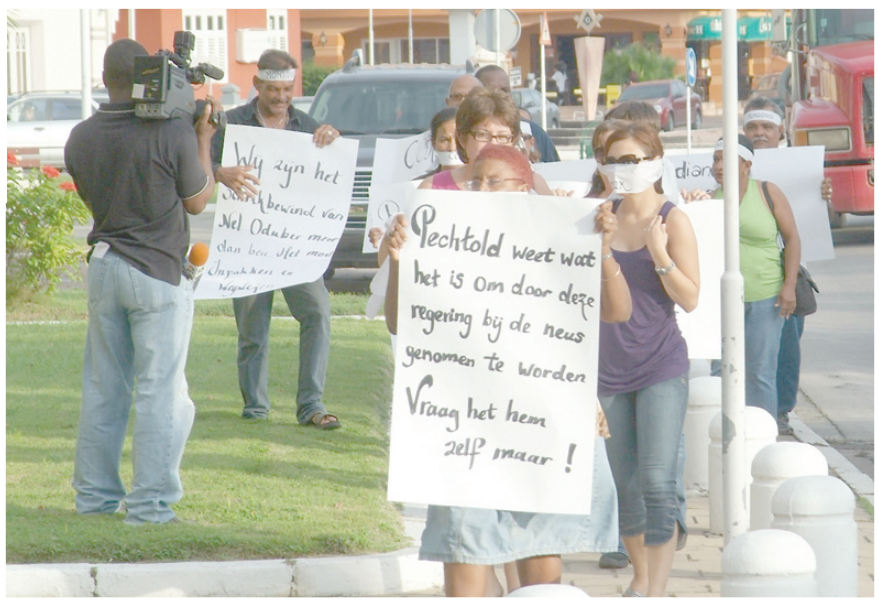 Wij zijn het
schrikbewind van
Nel Oduber meer
dan beu. Het moet
Inpakken en
wegwezen
Pechtold weet wat
het is om door deze
regering bij de neus
genomen te worden
Vraag het hem
zelf maar !